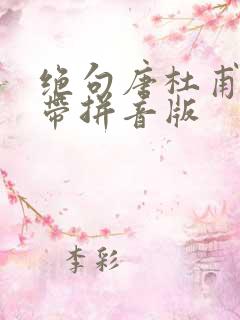 绝句唐杜甫
带拼音版
李彩